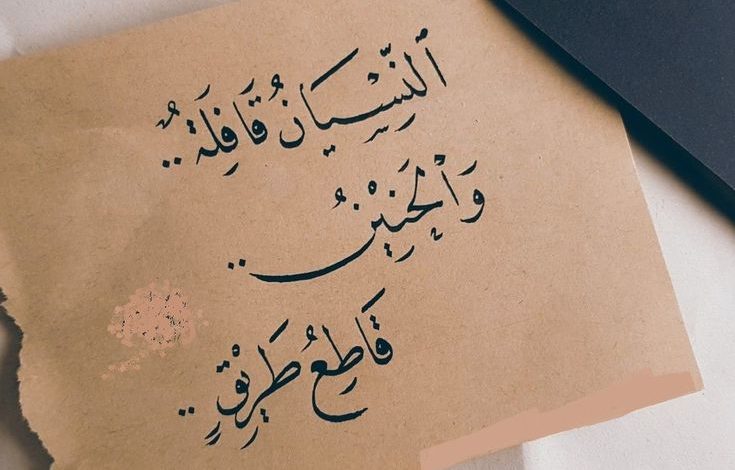 ٱلنِّسْيَانُ قَافِلَةٌ ..
وَٱلْحَنِيْنُ ..
قَاطِعُ طَرِيْقٍ ..